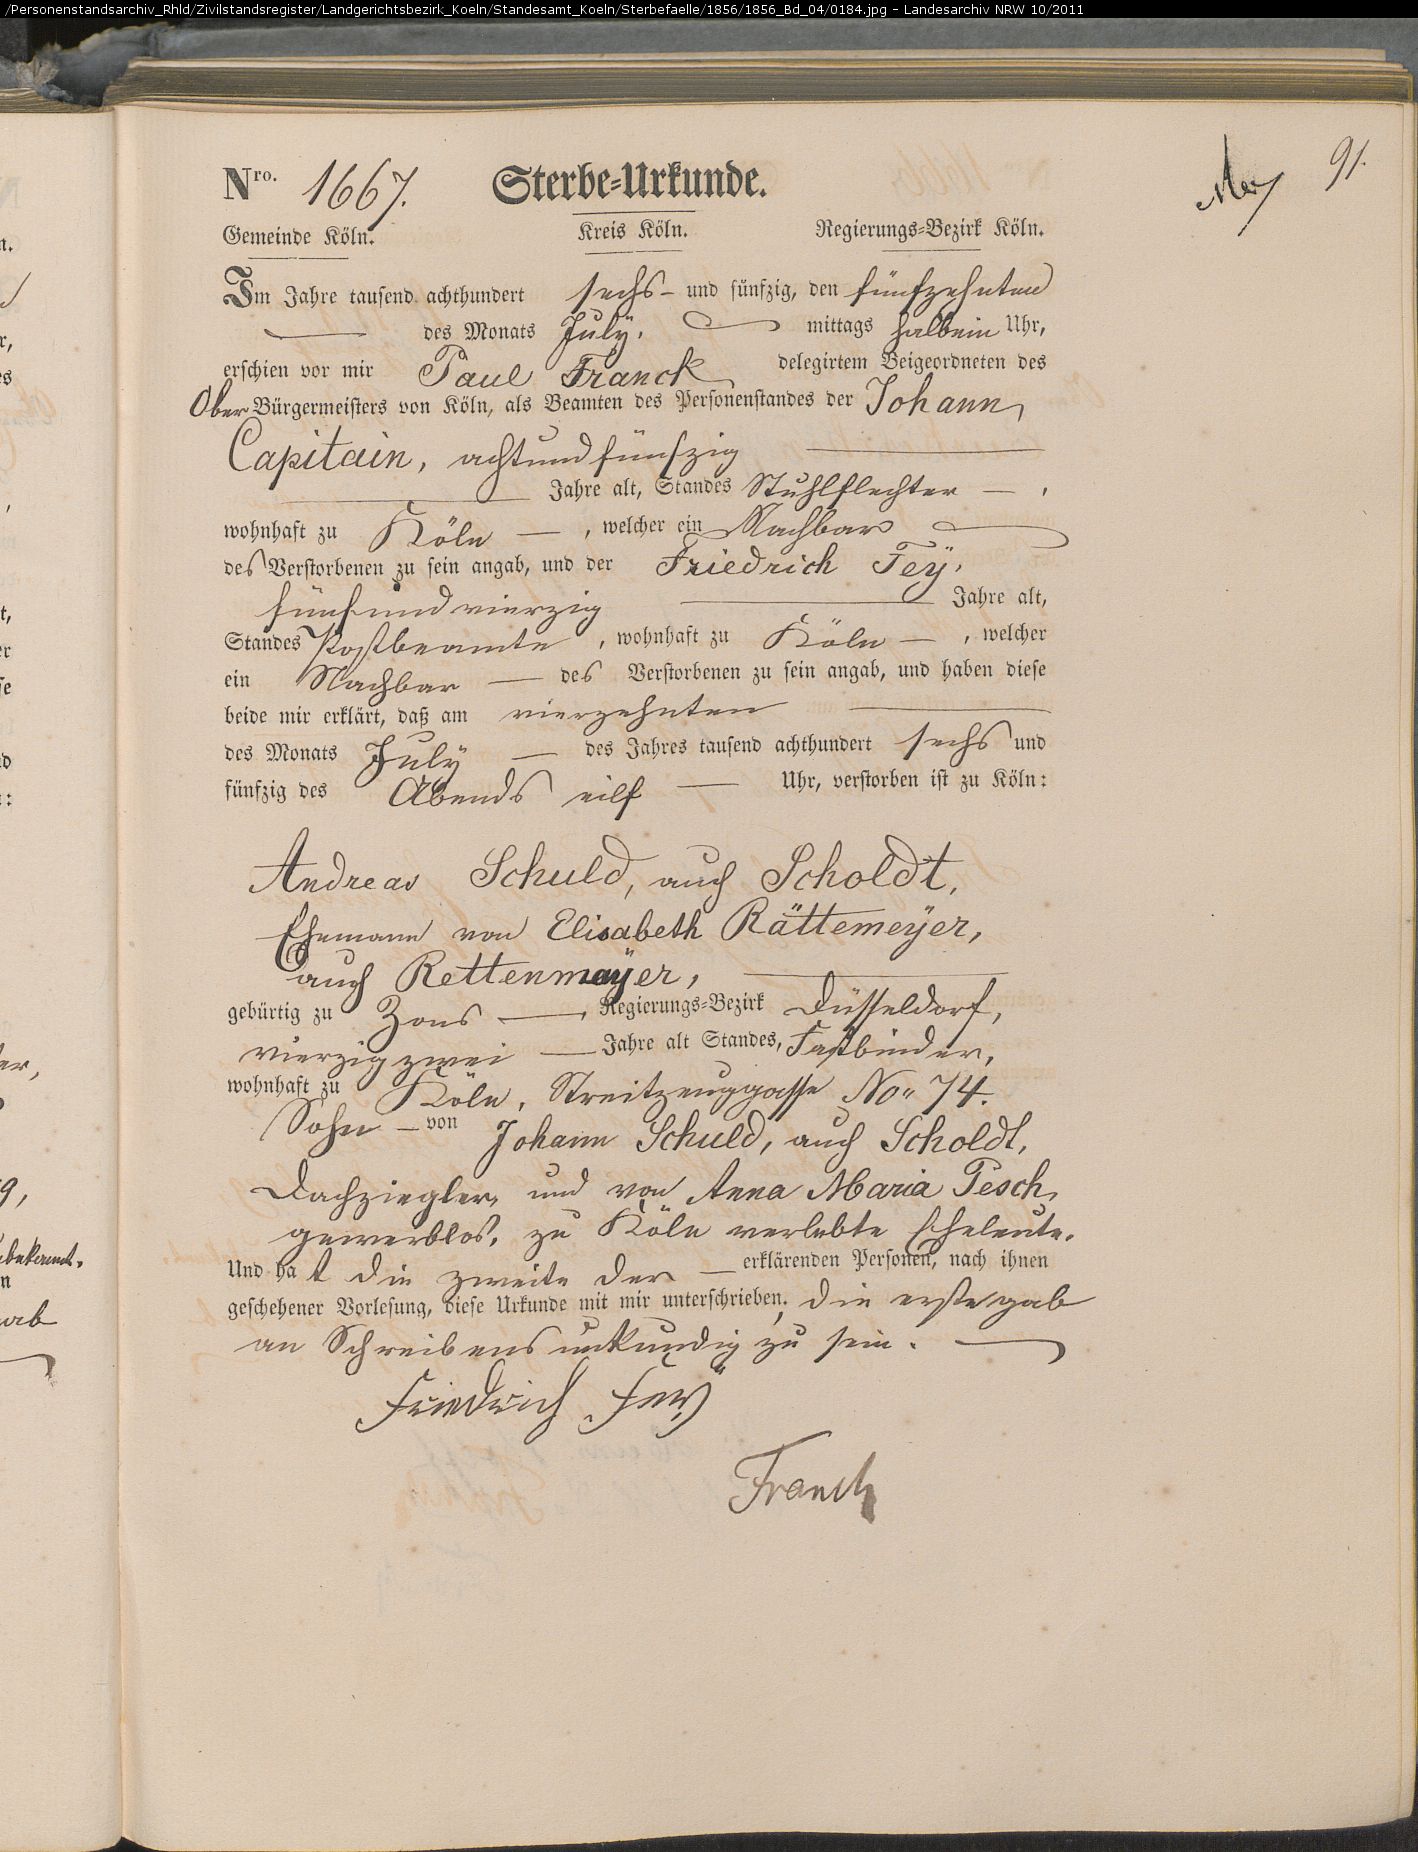 /Personenstandsarchiv_Rhld/Zivilstandsregister/Landgerichtsbezirk_Koeln/Standesamt_Koeln/Sterbefaelle/1856/1856_Bd_04/0184.jpg - Landesarchiv NRW 10/2011
91.
Nro. 1667. Sterbe-Urkunde.
Gemeinde Köln. Kreis Köln. Regierungs-Bezirk Köln.
Im Jahre tausend achthundert sechs- und fünfzig, den fünfzehnten
des Monats July. mittags halbein Uhr,
erschien vor mir Paul Franck delegirtem Beigeordneten des
Ober Bürgermeisters von Köln, als Beamten des Personenstandes der Johann
Capitain, achtundfünfzig
Jahre alt, Standes Stuhlflechter — ,
wohnhaft zu Köln — , welcher ein Nachbar
des Verstorbenen zu sein angab, und der Friedrich Feÿ,
fünfundvierzig Jahre alt,
Standes Postbeamte , wohnhaft zu Köln — , welcher
ein Nachbar — des Verstorbenen zu sein angab, und haben diese
beide mir erklärt, daß am vierzehnten
des Monats July — des Jahres tausend achthundert sechs und
fünfzig des Abends eilf — Uhr, verstorben ist zu Köln:
Andreas Schuld, auch Scholdt,
Ehemann von Elisabeth Rättemeÿer,
auch Rettenmaÿer,
gebürtig zu Zons —, Regierungs-Bezirk Düsseldorf,
vierzigzwei — Jahre alt Standes, Faßbinder,
wohnhaft zu Köln, Streitzeuggasse No 74.
Sohn — von Johann Schuld, auch Scholdt,
Dachziegler, und von Anna Maria Pesch,
gewerblos, zu Köln verlebte Eheleute.
Und hat die zweite der — erklärenden Personen, nach ihnen
geschehener Vorlesung, diese Urkunde mit mir unterschrieben, die erste gab
an Schreibens unkundig zu sein.
Friedrich Feÿ
Franck